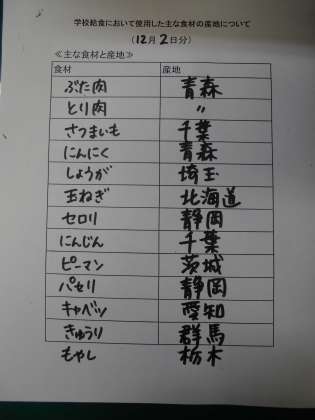 学校給食において使用した主な食材の産地について
(12月2日分)
≪主な食材と産地≫
食材 産地
ぶた肉 青森
とり肉 〃
さつまいも 千葉
にんにく 青森
しょうが 埼玉
玉ねぎ 北海道
セロリ 静岡
にんじん 千葉
ピーマン 茨城
パセリ 静岡
キャベツ 愛知
きゅうり 群馬
もやし 栃木